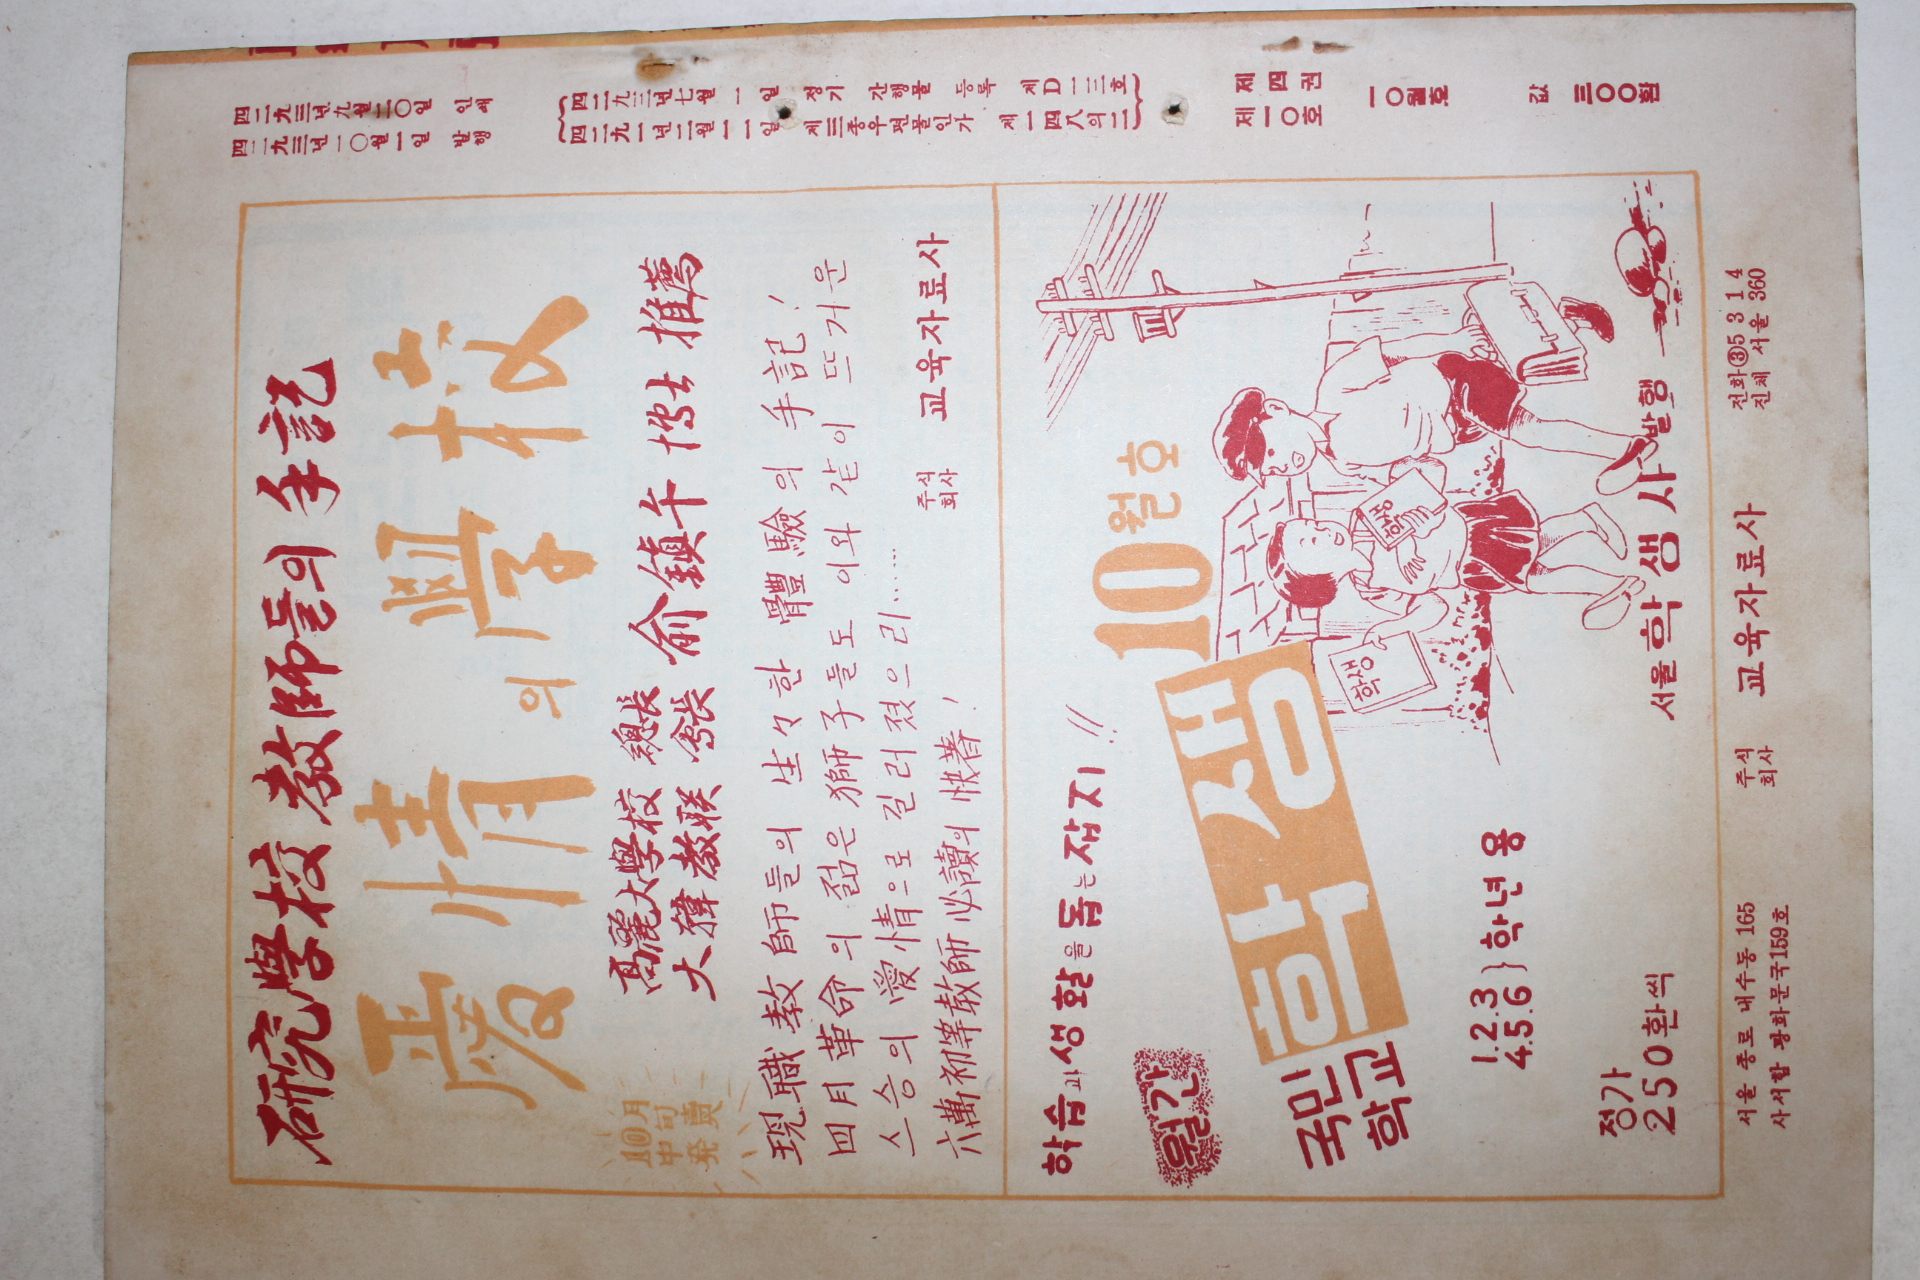 研究學校 教師들의 手記
愛情의 學校
10月
中旬
発賣
高麗大學校 總長
大韓教联 會長
兪鎮午 博士 推薦
現職 教師들의 生々한 體驗의 手記!
四月革命의 젊은 獅子들도 이와 같이 뜨거운
스승의 愛情으로 길러졌으리……
六萬初等教師 必讀의 快著!
주식
회사
교육자료사
학습과 생활을 돕는 잡지!!
월간
국민
학교
학생
10월호
학생
학생
1.2.3
4.5.6
} 학년 용
정가
250환씩
서울 학생사 발행
서울 종로 내수동 165
사서함 광화문국159호
주식
회사
교육자료사
전화③5314
진체 서울 360
四二九三년九월二〇일 인쇄
四二九三년一〇월一일 발행
四二九三년七월 一 일 정기 간행물 등록 제D一三호
四二九一년二월一一일 제三종우편물인가 제一四八의二
제四권
제一〇호
一〇월호
값 三〇〇환